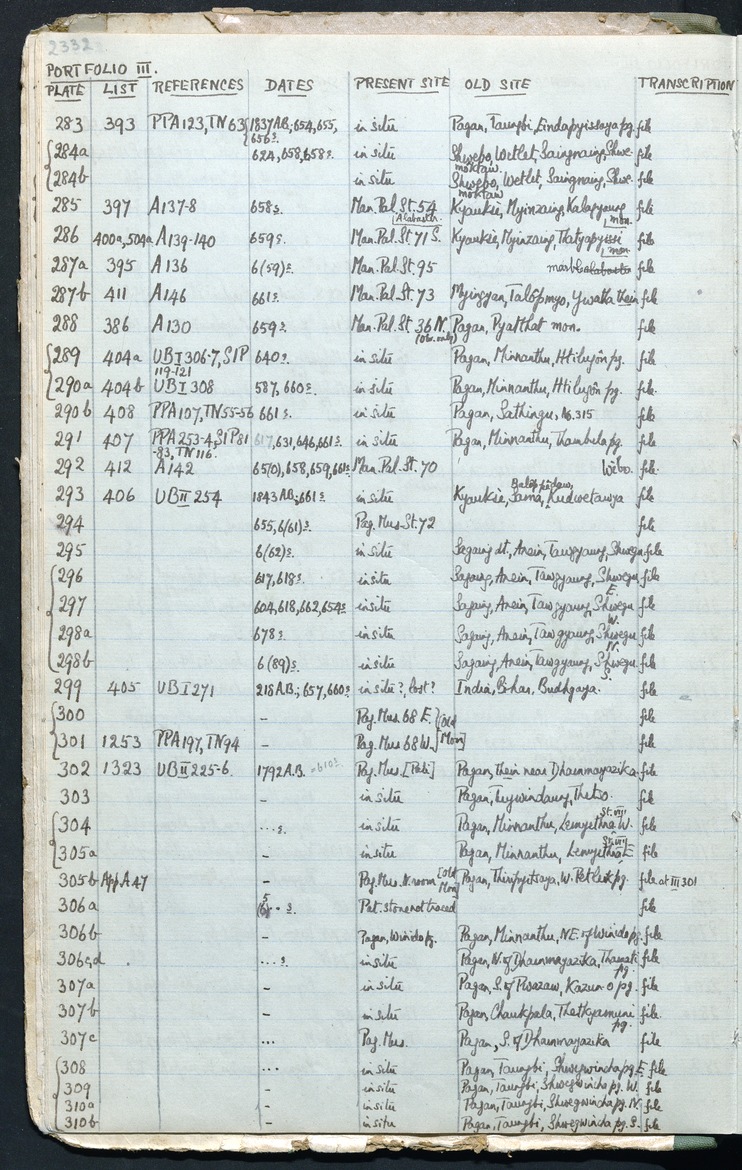 2332
PORTFOLIO III.
PLATE LIST REFERENCES DATES PRESENT SITE OLD SITE TRANSCRIPTION
283 393 PPA123, TN63 1837AB; 654, 655, 656s. in situ Pagan, Taungbi, Eindapyissaya pg. file
284a 624, 658, 658s. in situ Shwebo, Wetlet, Saingnaing, Shwemoktaw. file
284b in situ Shwebo, Wetlet, Saingnaing, Shwemoktaw file
285 397 A137-8 658s. Man. Pal. St. 54 Kyaukse, Myinzaing, Kalagyaung mon. file
286 400a, 504a A139-140 659s. Man. Pal. St. 71 S. [Alabaster. Kyaukse, Myinzaing, Thatyapyissi mon. file
287a 395 A136 6(59)s. Man. Pal. St. 95 file
287b 411 A146 661s. Man. Pal. St. 73 Myingyan, Talôpmyo, Ywatha thein file
288 386 A130 659s. Man. Pal. St. 36 N. (Obv. only) Pagan, Pyatthat mon. file
289 404a UB I 306-7, SIP 119-121 640s. in situ Pagan, Minnanthu, Htilusôn pg. file
290a 404b UB I 308 587, 660s. in situ Pagan, Minnanthu, Htilusôn pg. file.
290b 408 PPA107, TN55-56 661s. in situ Pagan, Sathingu, No. 315 file
291 407 PPA253-4, SIP81-83, TN116. 617, 631, 646, 661s. in situ Pagan, Minnanthu, Thambula pg. file
292 412 A142 65(0), 658, 659, 661s. Man. Pal. St. 70 file.
293 406 UB II 254 1843 AB; 661s. in situ Kyaukse, Kudwetawya file
294 655, 6(61)s. Pag. Mus. St. 72 file
295 6(62)s. in situ Sagaing dt., Anein, Tawgyaung, Shwegu file
296 617, 618s. in situ Sagaing, Anein, Tawgyaung, Shwegu E. file
297 604, 618, 662, 654s in situ Sagaing, Anein, Tawgyaung, Shwegu W. file
298a 678s. in situ Sagaing, Anein, Tawgyaung, Shwegu N. file
298b 6(89)s. in situ Sagaing, Anein, Tawgyaung, Shwegu S. file
299 405 UB I 271 218 A.B.; 657, 660s. in situ?, lost? India, Bihar, Budhgaya. file
300 – Pag. Mus. 68 E. [Old Mon] file
301 1253 PPA197, TN94 – Pag. Mus. 68 W. file
302 1323 UB II 225-6. 1792 A.B. =610s. Pag. Mus. [Pali] Pagan, thein near Dhammayazika. file
303 – in situ Pagan, Tuywindaung, Thetso. file
304 ...s. in situ Pagan, Minnanthu, Lemyethna W. St. VIII file
305a – in situ Pagan, Minnanthu, Lemyethna E St. VIII file
305b App A 47 – Pag. Mus. N. room [Old Mon] Pagan, Thiripyitsaya, W. Petleik pg. file at III 301
306a 5(6)..s. Pat. stone not traced file
306b – Pagan, Winido pg. Pagan, Minnanthu, NE. of Winido pg. file
306c,d ...s. in situ Pagan, N. of Dhammayazika, Thamati pg. file
307a – in situ Pagan, S. of Pwazaw, Kazun-o pg. file
307b – in situ Pagan, Chaukpala, Thetkyamuni pg. file
307c ... Pag. Mus. Pagan, S. of Dhammayazika file
308 ... in situ Pagan, Taungbi, Shwegwincha pg. E. file
309 – in situ Pagan, Taungbi, Shwegwincha pg. W. file
310a – in situ Pagan, Taungbi, Shwegwincha pg. N. file
310b – in situ Pagan, Taungbi, Shwegwincha pg. S. file